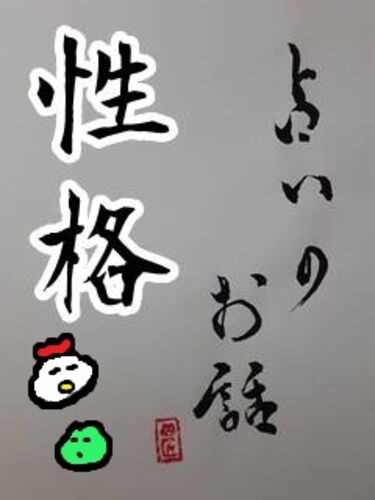 占いの
お話
性格